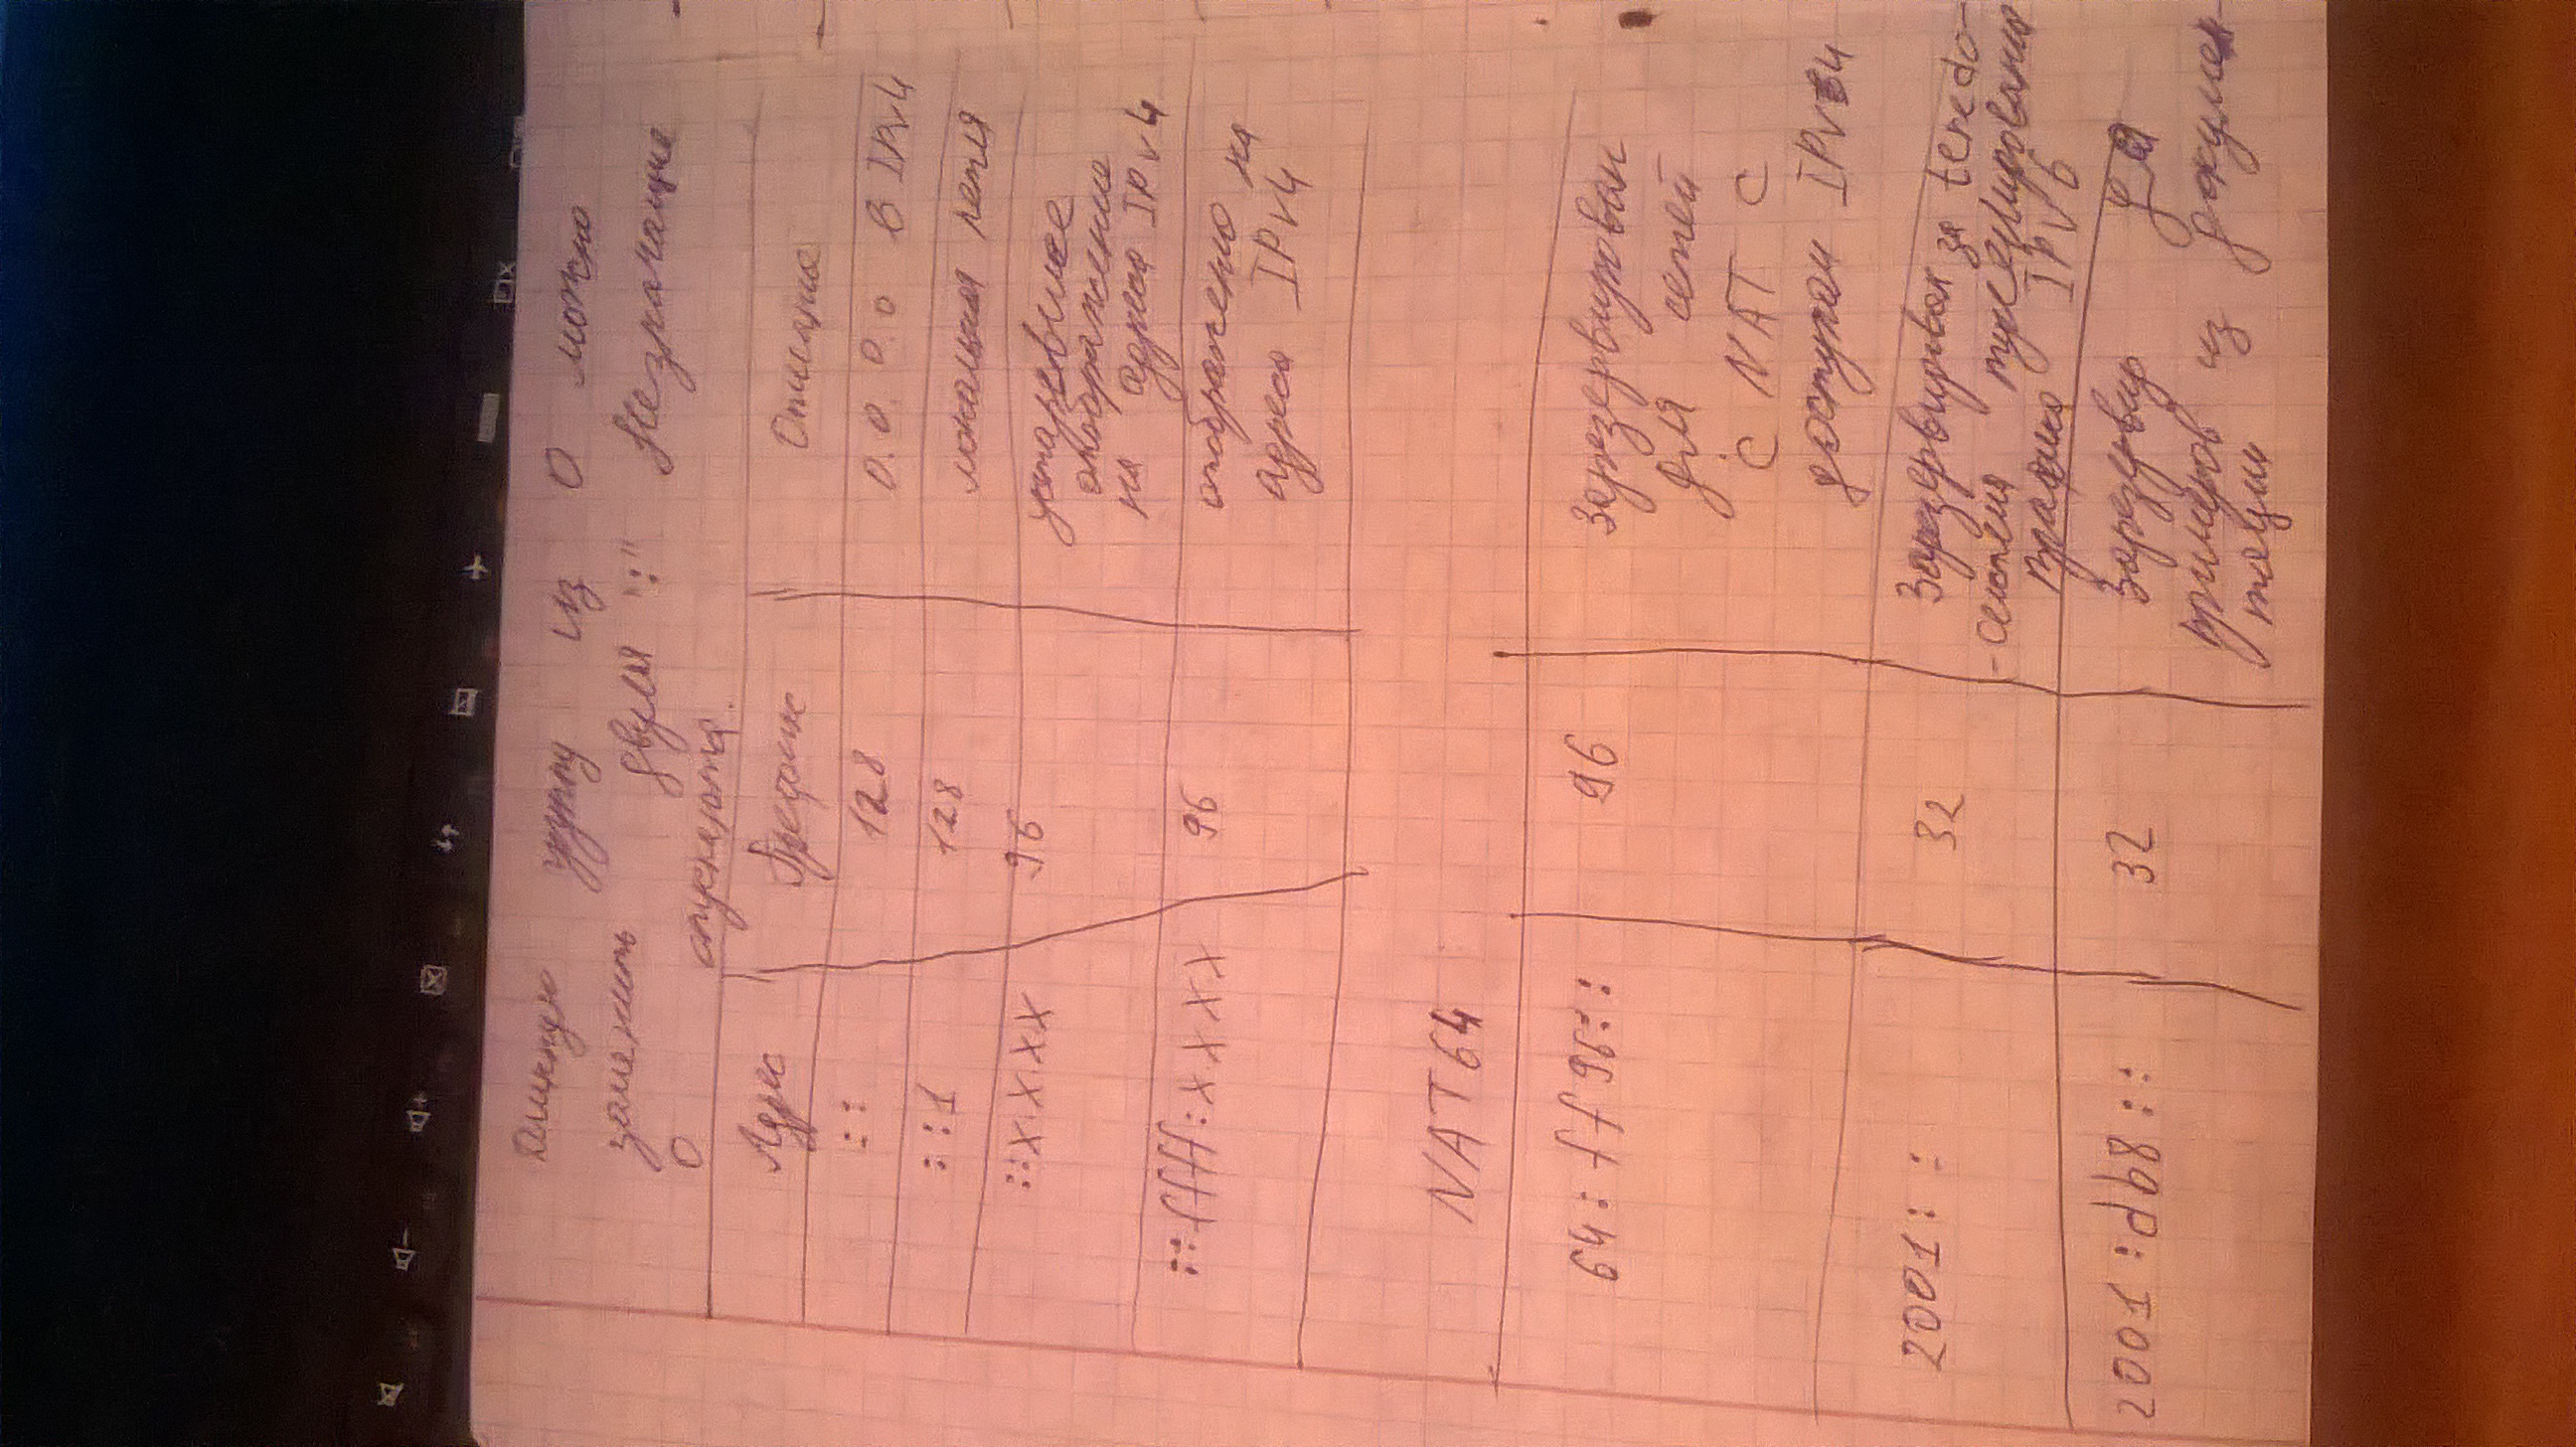 Длинную группу из 0 можно
заменить двумя ":" Незначащие
0 опускаются.
Адрес Префикс Описание
:: 128 0.0.0.0 в IPv4
::1 128 локальная петля
::X.X.X.X 96 устаревшее
отображение
на адреса IPv4
::ffff:X.X.X.X 96 отображение на
адреса IPv4
NAT64
64:ff96:: 96 Зарезервирован
для сетей
с NAT с
доступом IPv4
2001:: 32 Зарезервирован за teredo-
-система туннелирования
трафика IPv6
2001:db8:: 32 Зарезервир для
примеров из докумен-
тации